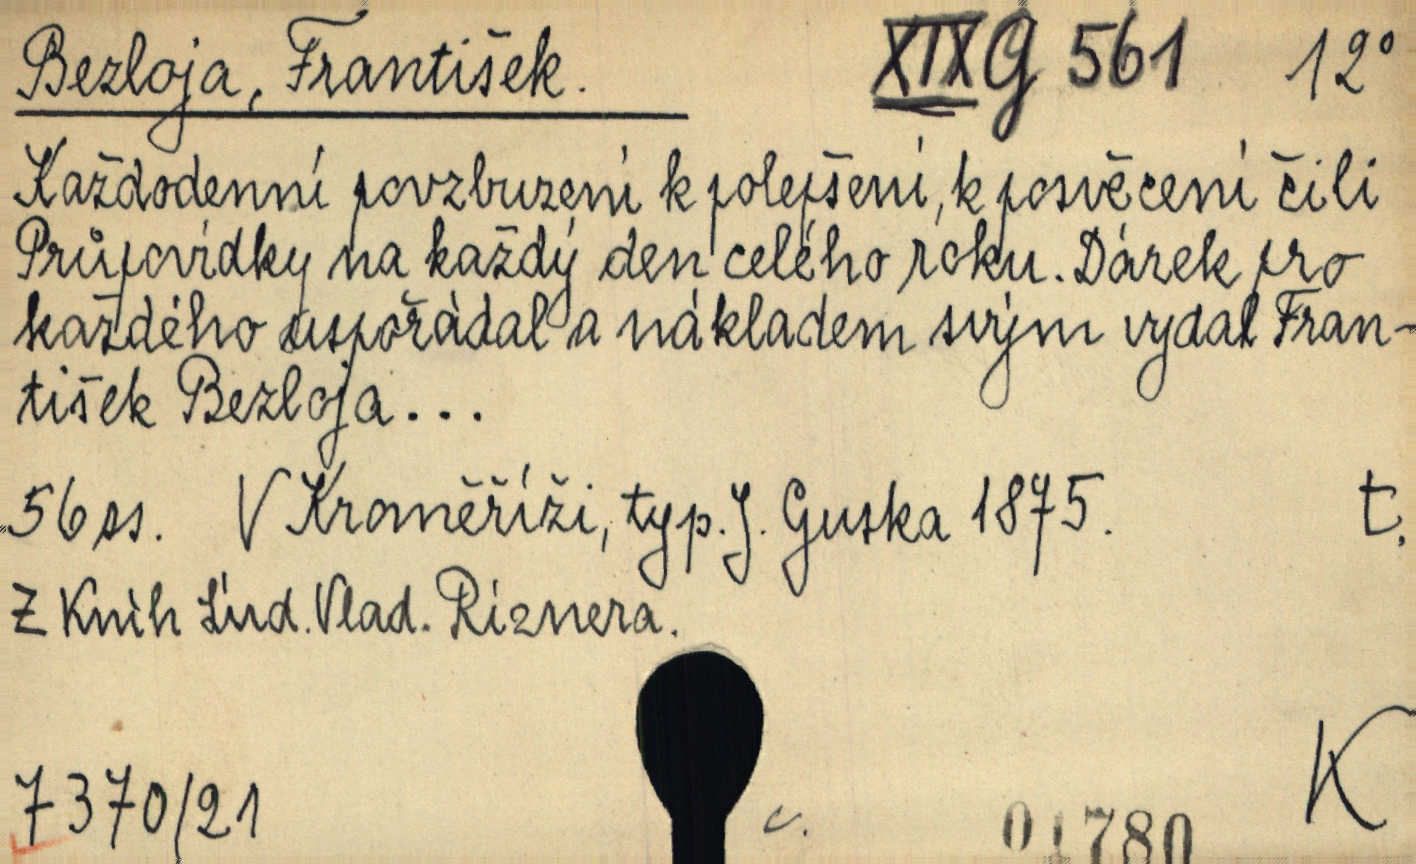 Bezloja, František. XIX G 561 12°
Každodenní povzbuzení k polepšení, k posvěcení čili
Průpovídky na každý den celého roku. Dárek pro
každého uspořádal a nákladem svým vydal Fran-
tišek Bezloja...
56 ss. V Kroměříži, typ. J. Guska 1875. t.
Z Knih Ľud. Vlad. Riznera.
K
7370/21
c. 01780